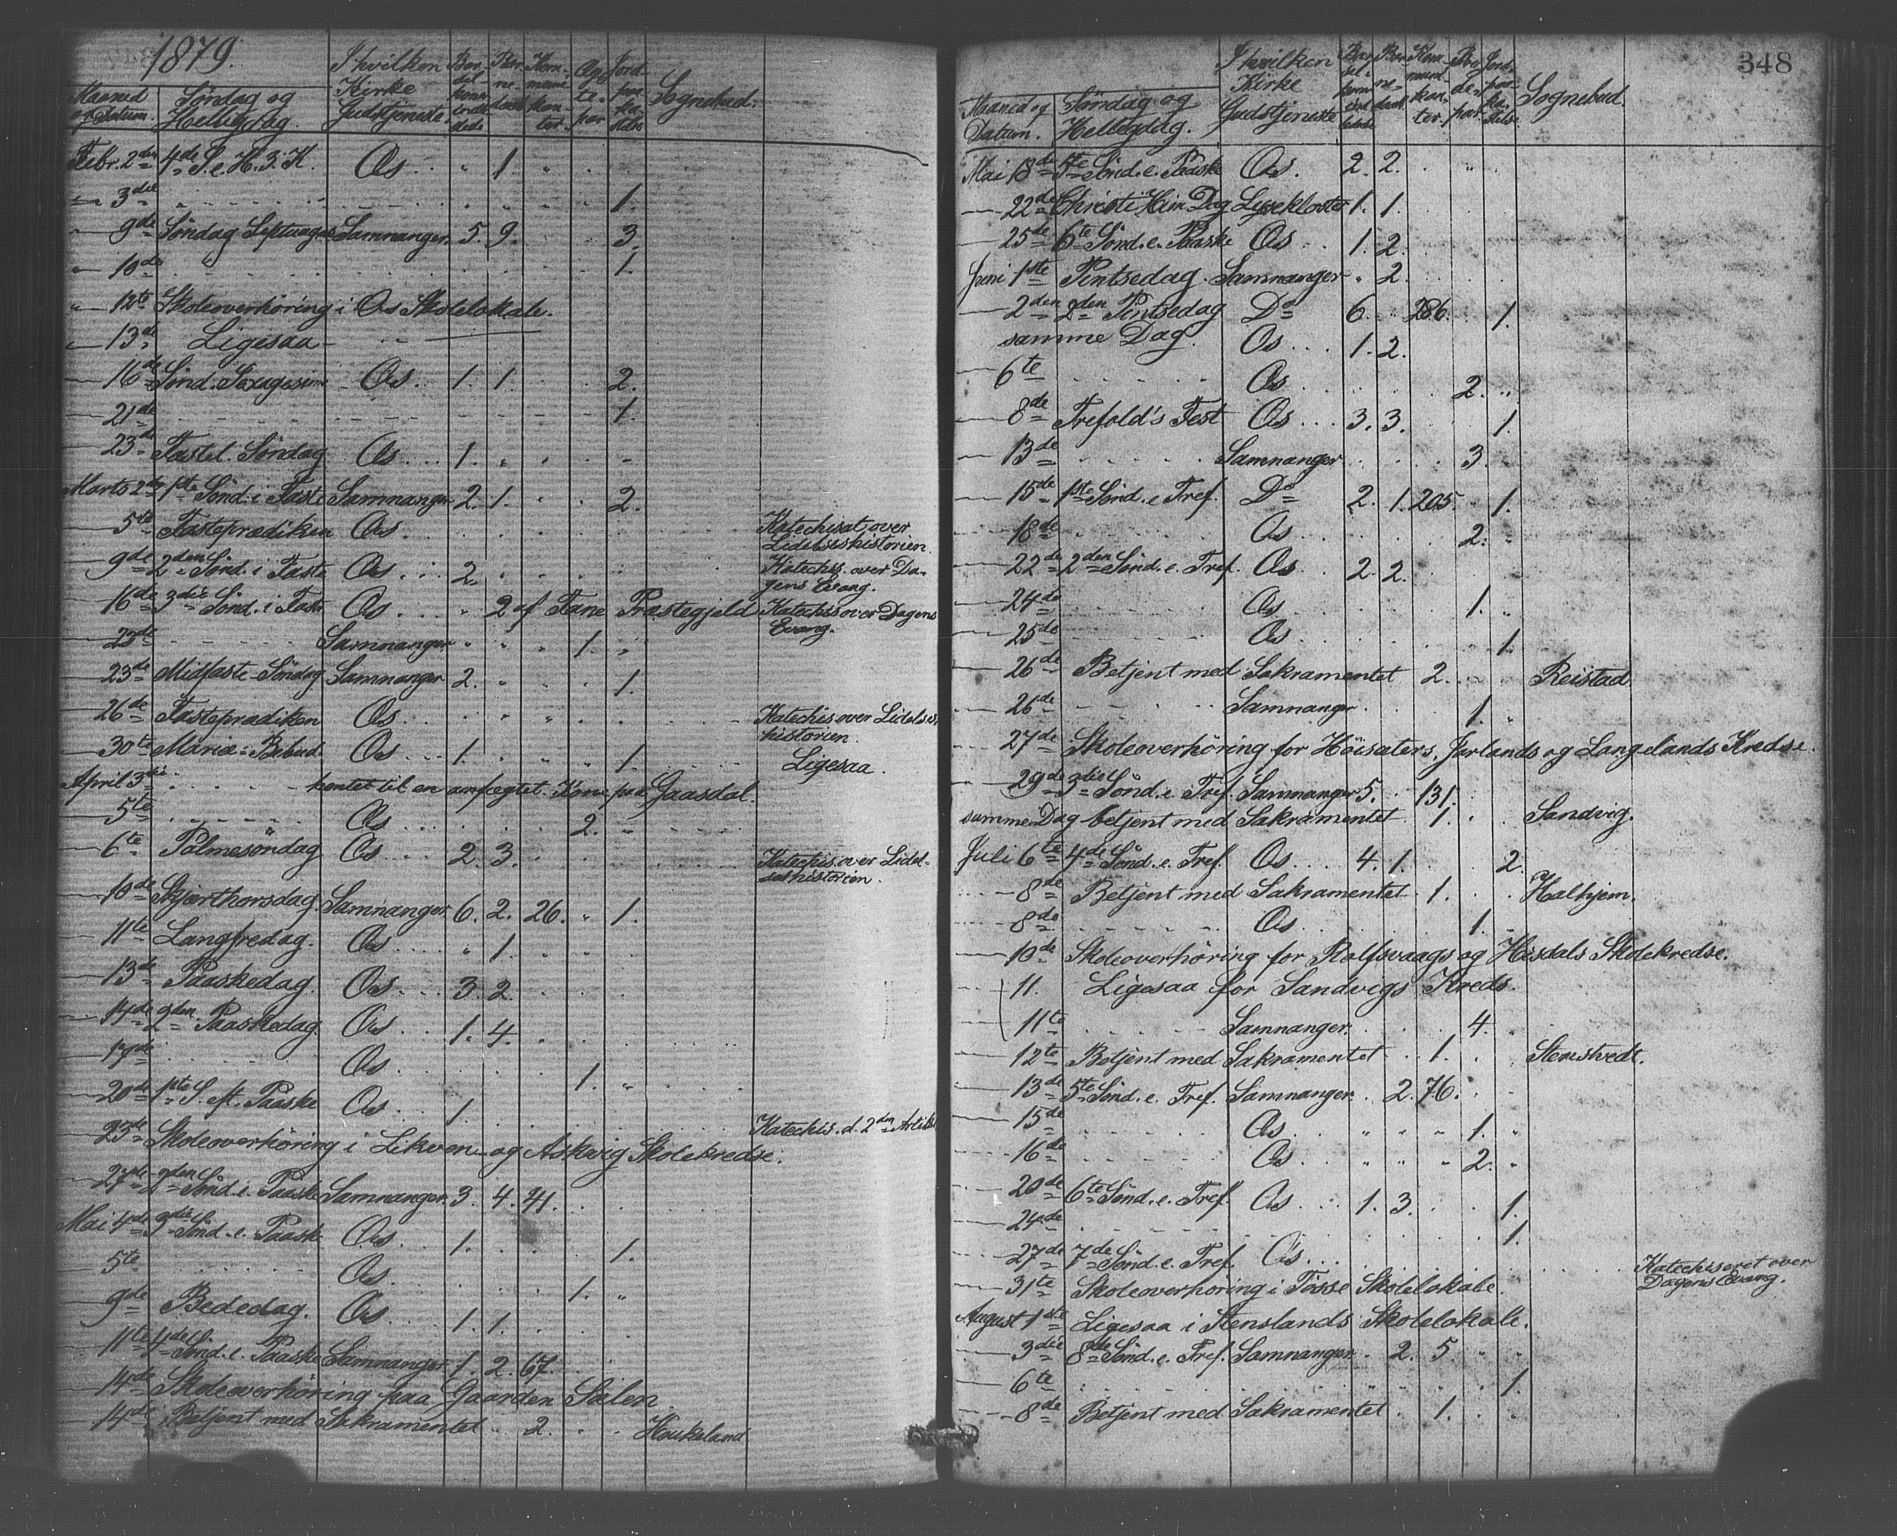 1879.
Maaned og Datum. Søndag og Hellegdag. I hvilken Kirke Gudstjeneste Barselkoner indledede Barnedaab Kommunikanter. Ægtepar Jordpaakastelse Sognebud.
Febr. 2den 4de S. e. H. 3. K. Os " 1 "
" 3die 1.
" 9de Søndag Septuages Samnanger. 5. 9. 3.
" 10de 1.
" 12te Skoleoverhøring i Os Skolelokale.
" 13de Ligesaa
16de Sønd. Sexagesima Os 1. 1. 2.
21de 1.
23de Fastel. Søndag Os 1. " "
Marts 2den 1ste Sønd. i Faste Samnanger 2. 1. 2.
5te Fasteprædiken Os. Katechisat. over Lidelseshistorien
9de 2den Sønd. i Faste Os. 2. Katechis. over Dagens Evang.
16de 3die Sønd. i Faste Os " 2 af Fane Præstegjeld Katechis over Dagens Evang.
Samnanger " " " 1. "
23de Midfaste Søndag Samnanger 2. " 1.
26de Fasteprædiken Os Katechis over Lidelseshistorien.
30te Mariæ Bebud. Os 1. 1. Ligesaa.
April 3die hentet til en anfægtet Kone paa Gaasdal.
5te Os 2. "
6te Palmesøndag Os 2. 3. Katechis. over Lidelseshistorien.
10de Skjærthorsdag Samnanger. 6. 2. 26. " 1.
11te Langfredag. Os " 1.
13de Paaskedag. Os 3. 2.
14de 2den Paaskedag Os 1. 4.
19de Os 1. "
20de 1ste S. ft. Paaske Os 1. Katechis. d. 2den Artikel
23de Skoleoverhøring i Likven og Askvig Skolekredse.
27de 2den Sønd. e. Paaske Samnanger. 3. 4. 41.
Mai 4de 3die Sønd. e. Paaske Os. 1. 1.
5te Os 1. "
9de Bededag. Os 1. 1.
11te 4de Sønd. e. Paaske Samnanger 1. 2. 67.
14de Skoleoverhøring paa Gaarden Salen
14de Betjent med Sakramentet 2. Haukeland
348
Maaned og Datum. Søndag og Hellegdag. I hvilken Kirke Gudstjeneste Barselkoner indledede Barnedaab Kommunikanter. Jordpaakastelse Sognebud.
Mai 18de 5te Sønd. e. Paaske Os. 2. 2.
22de Christi Him. Dag Lysekloster 1. 1.
25de 6te Sønd. e. Paaske Os 1. 2.
Juni 1ste Pintsedag. Samnanger " 2.
2den 2den Pintsedag Do 6. 286. 1.
samme Dag. Os 1. 2.
6te Os 2. "
8de Trefold's Fest Os 3. 3. 1.
13de Samnanger 3.
15de 1ste Sønd. e Tref. Do 2. 1. 205. 1.
18de Os 2.
22de 2den Sønd. e. Tref. Os 2. 2.
24de Os 1. "
25de Os 1.
26de Betjent med Sakramentet 2. Reistad
26de Samnanger 1. "
27de Skoleoverhøring for Høisæters, Jarlands og Langelands Kredse.
29de 3die Sønd. e. Tref. Samnanger 5. 131.
samme Dag betjent med Sakramentet 1. Sandvig.
Juli 6te 4de Sønd. e. Tref. Os 4. 1. 2.
8de Betjent med Sakramentet 1. Halhjem.
8de Os 1.
10de Skoleoverhøring for Rolfsvaags og Hisdals Skolekredse.
11. Ligesaa for Sandvigs Kreds.
11te Samnanger. 4.
12te Betjent med Sakramentet 1. Stenstvedt.
13de 5te Sønd. e. Tref. Samnanger. 2. 76.
15de Os " " " 1. "
16de Os " " " 2. "
20de 6te Sønd. e. Tref. Os 1. 3. 1.
24de 1.
27de 7de Sønd. e. Tref. Os Katechiseret over Dagens Evang.
31te Skoleoverhøring i Tøsse Skolelokale.
August 1ste Ligesaa i Stenslands Skolelokale.
3die 8de Sønd. e. Tref. Samnanger. 2. 5. " "
6te 1.
8de Betjent med Sakramentet. 1. "